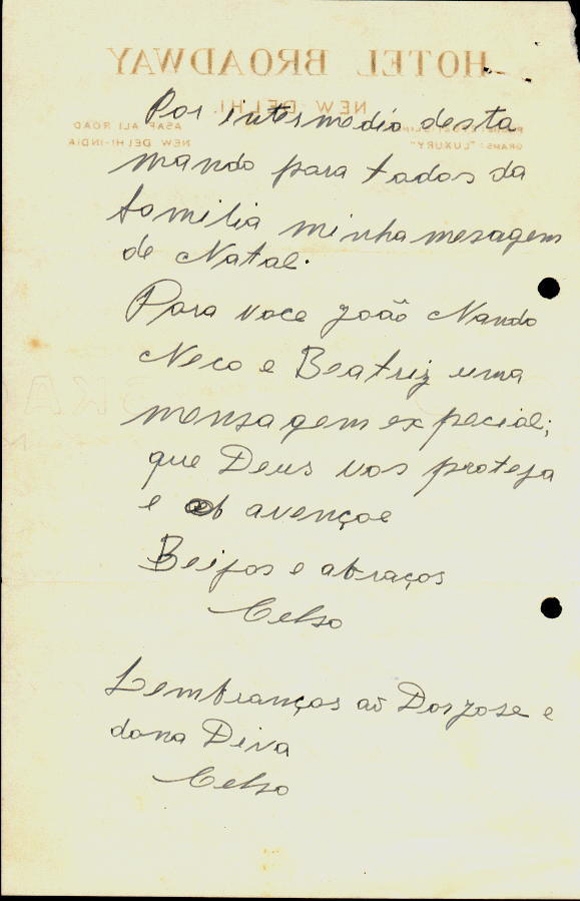 HOTEL BROADWAY
NEW DELHI.
ASAF ALI ROAD
NEW DELHI-INDIA
GRAMS: "LUXURY"
Por intermedio desta
mando para todos da
familia minha mesagem
de Natal.
Para voce João Nando
Neco e Beatriz uma
mensagem expecial;
que Deus vos proteja
e avençoe
Beijos e abraços
Celso
Lembranços ao Dorjose e
dona Diva
Celso